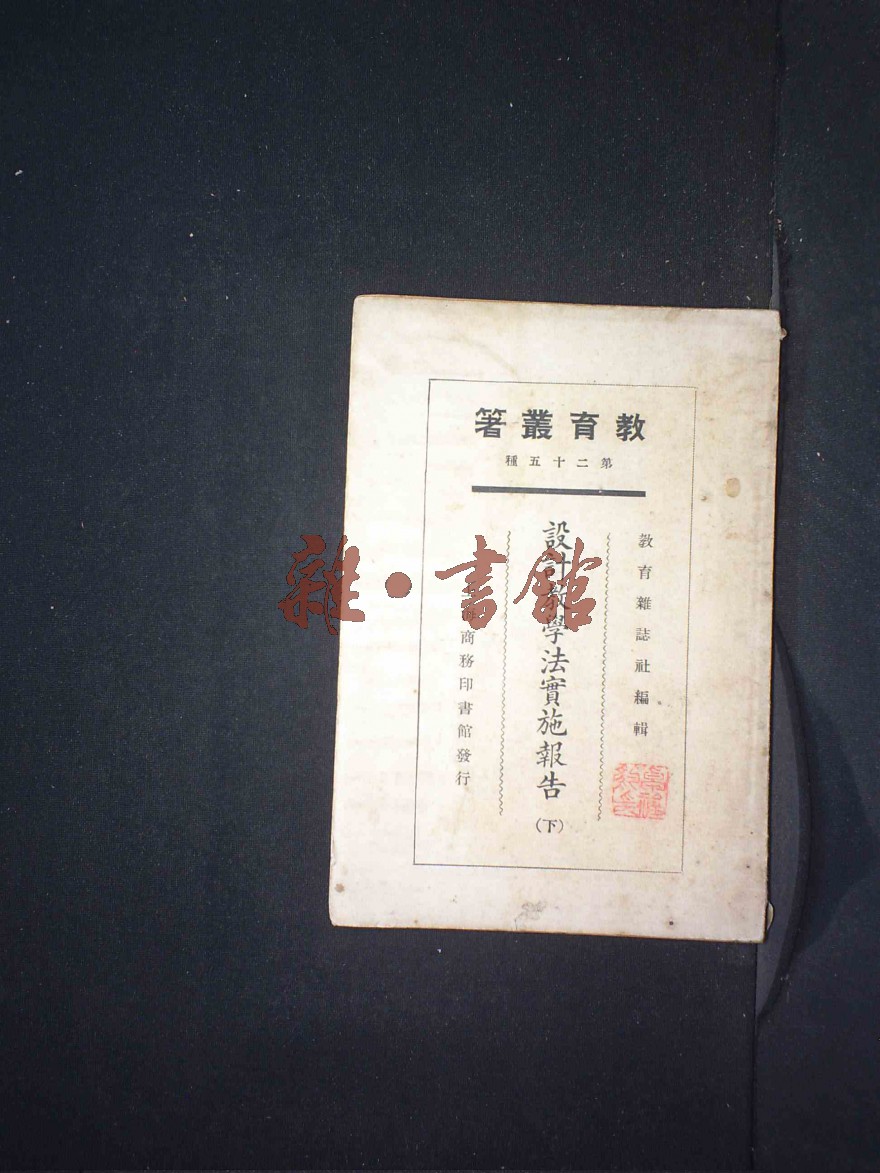 教育叢著
第二十五種
教育雜誌社編輯
設計教學法實施報告
(下)
商務印書館發行
雜·書館